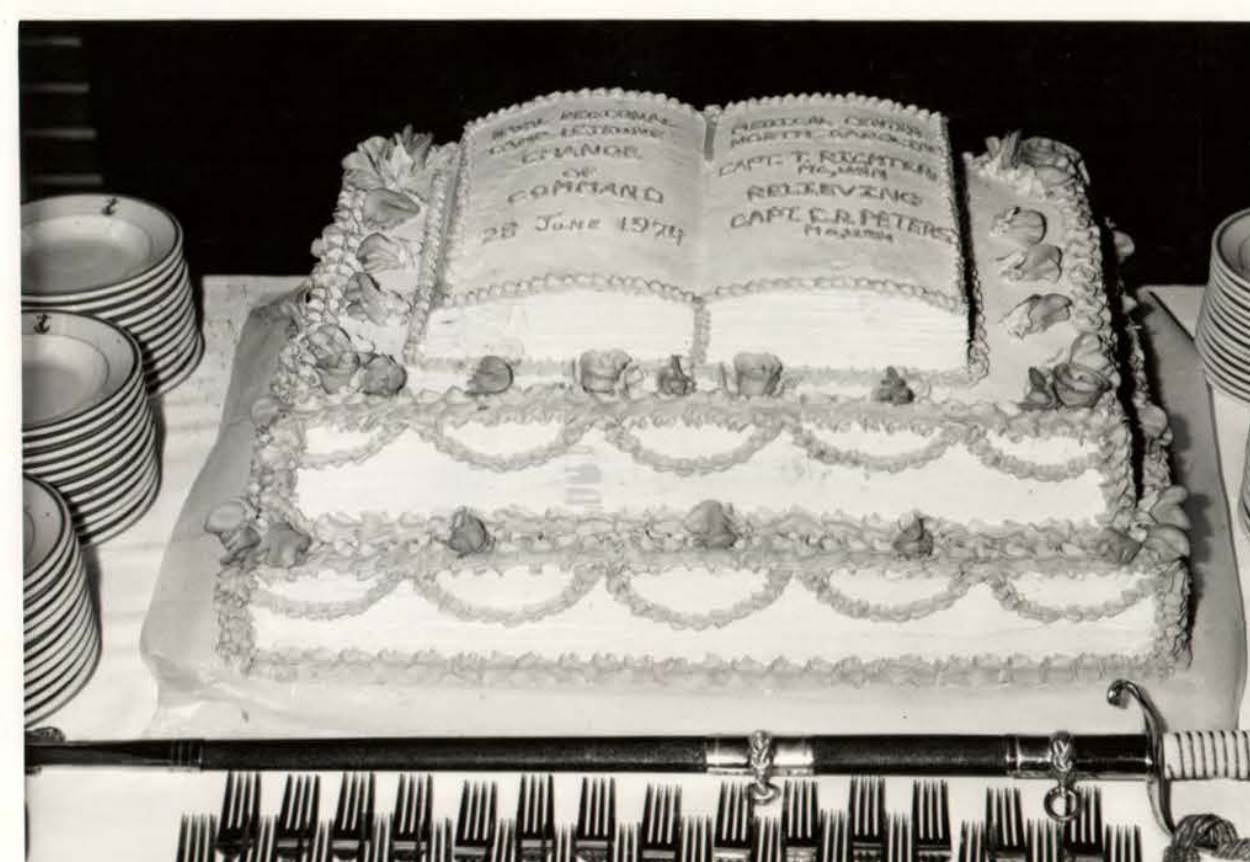 NAVAL REGIONAL
CAMP LEJEUNE
CHANGE
OF
COMMAND
28 JUNE 1974
MEDICAL CENTER
NORTH CAROLINA
CAPT. T. RICHTER
MC, USN
RELIEVING
CAPT. C.R. PETERS
MC, USN